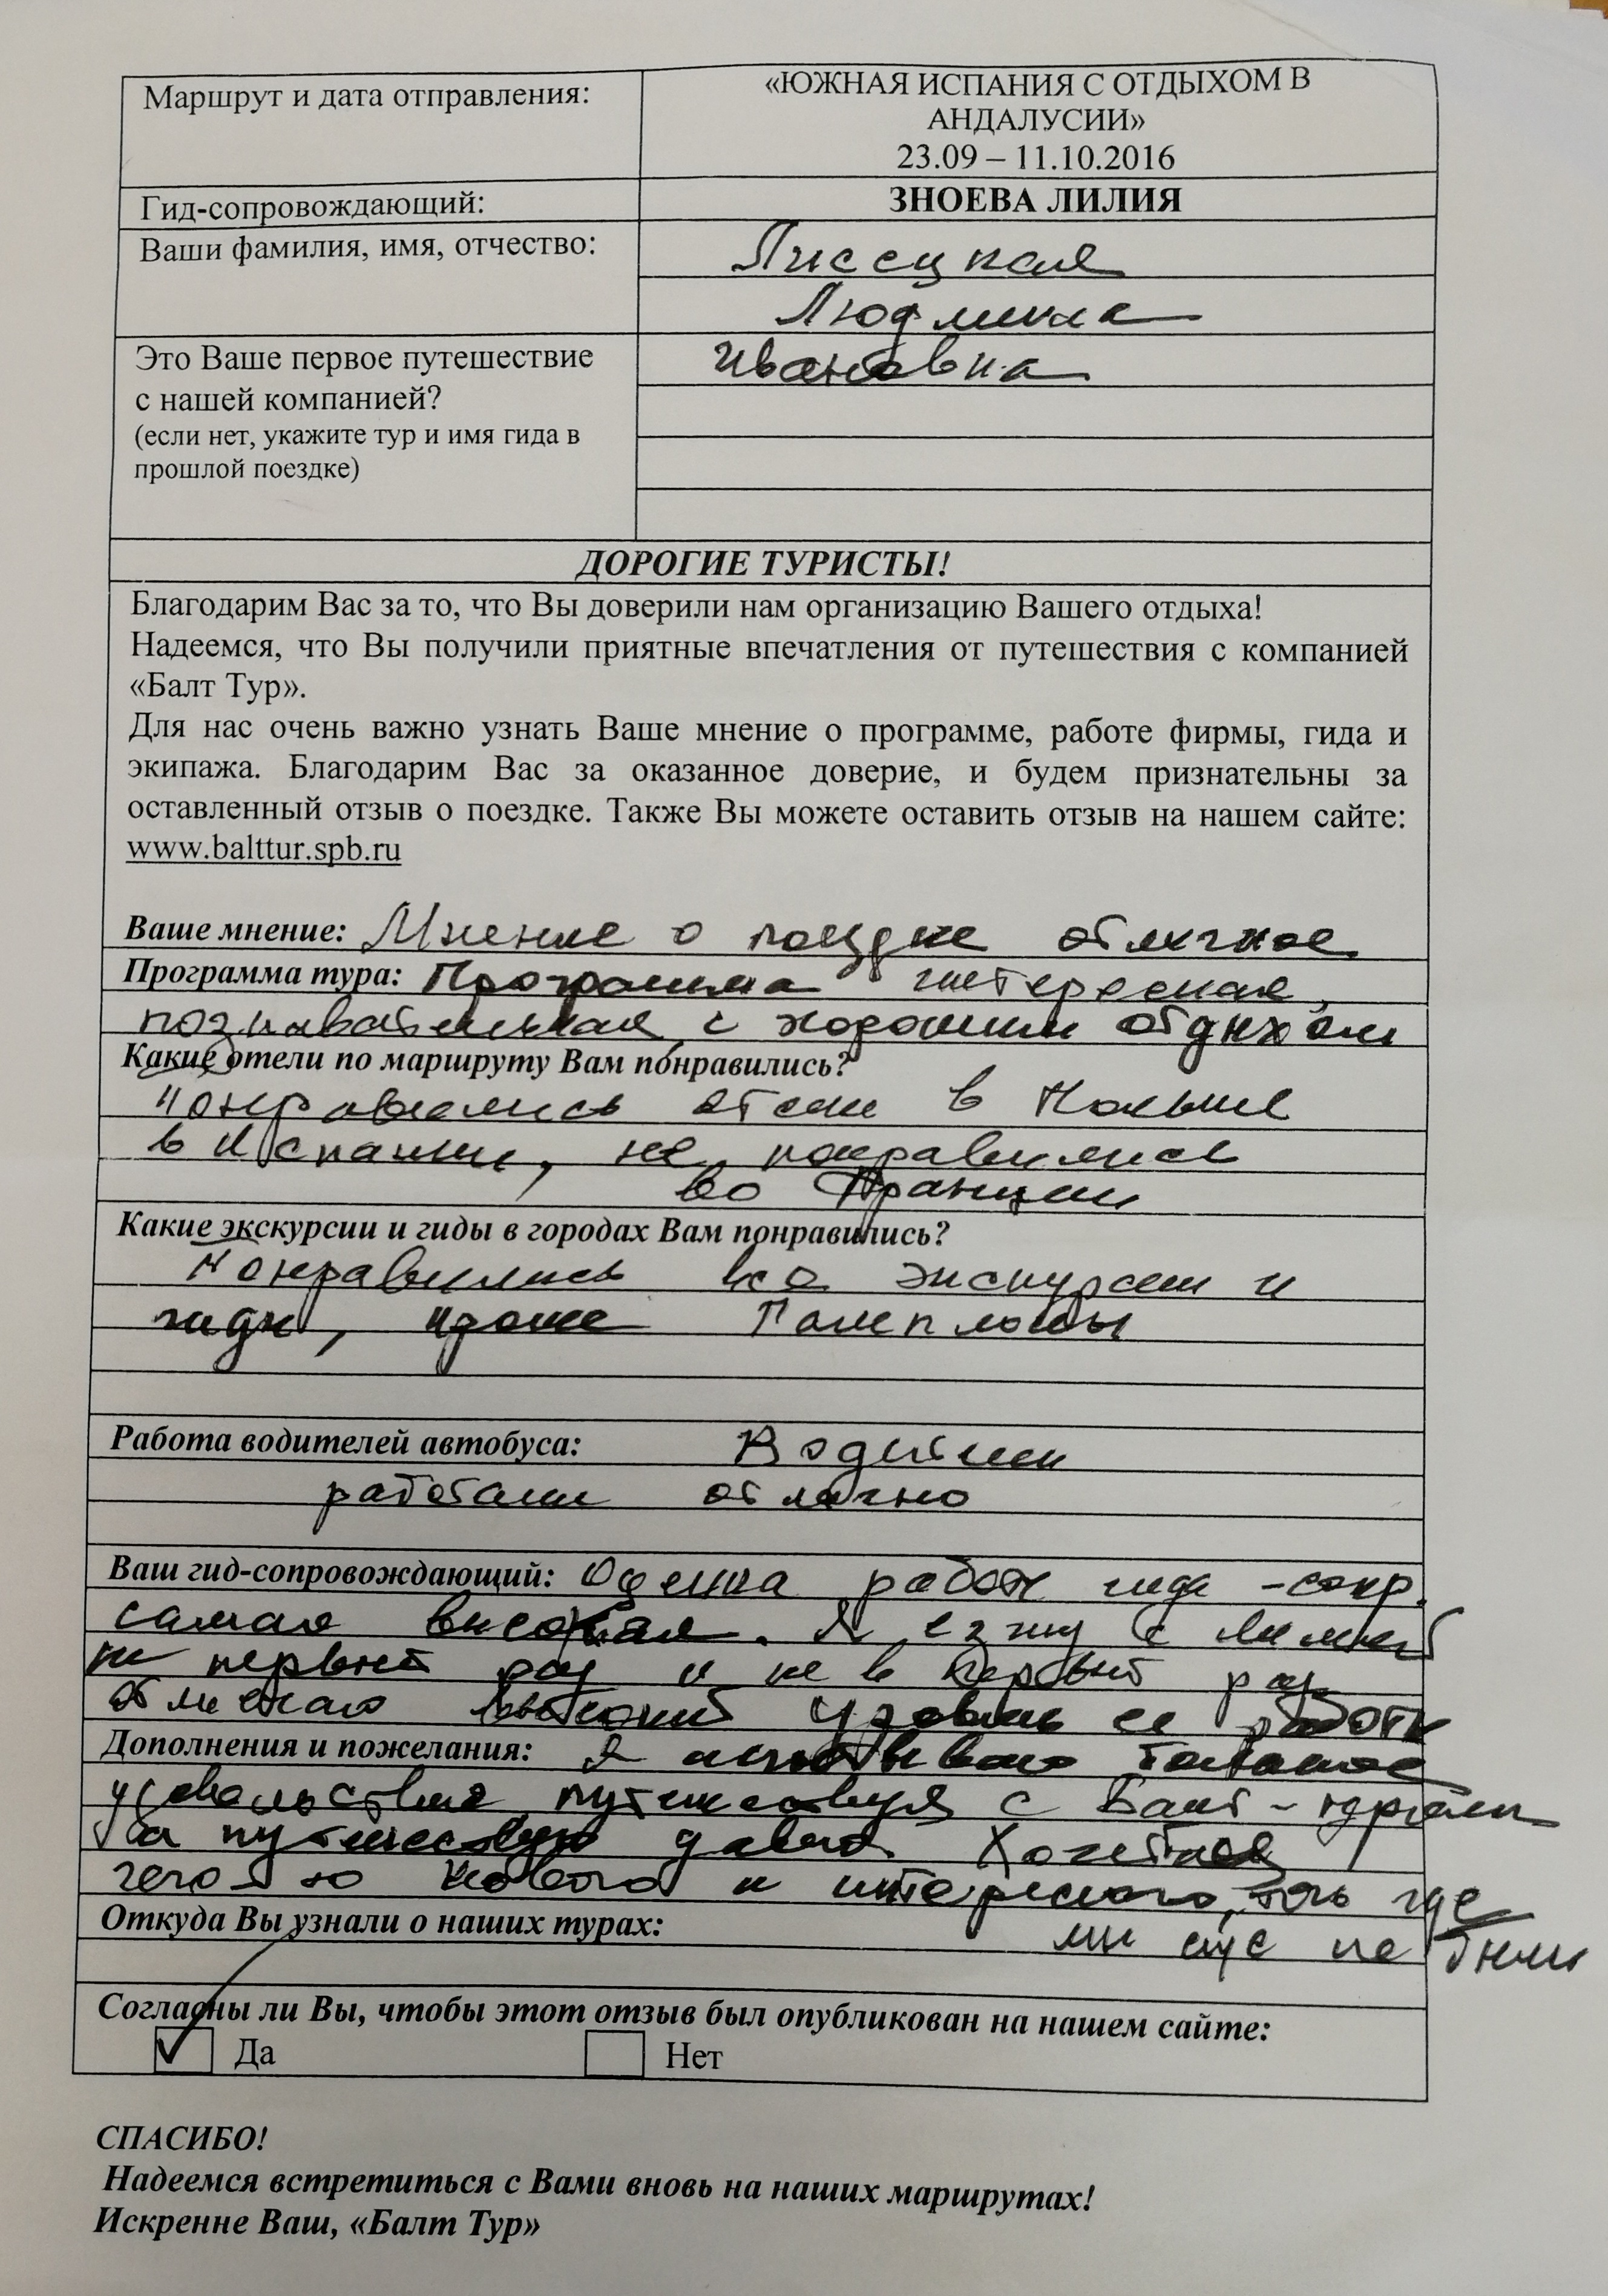 Маршрут и дата отправления:
«ЮЖНАЯ ИСПАНИЯ С ОТДЫХОМ В
АНДАЛУСИИ»
23.09 – 11.10.2016
Гид-сопровождающий:
ЗНОЕВА ЛИЛИЯ
Ваши фамилия, имя, отчество:
Лисецкая
Людмила
Ивановна
Это Ваше первое путешествие
с нашей компанией?
(если нет, укажите тур и имя гида в
прошлой поездке)
ДОРОГИЕ ТУРИСТЫ!
Благодарим Вас за то, что Вы доверили нам организацию Вашего отдыха!
Надеемся, что Вы получили приятные впечатления от путешествия с компанией
«Балт Тур».
Для нас очень важно узнать Ваше мнение о программе, работе фирмы, гида и
экипажа. Благодарим Вас за оказанное доверие, и будем признательны за
оставленный отзыв о поездке. Также Вы можете оставить отзыв на нашем сайте:
www.balttur.spb.ru
Ваше мнение: Мнение о поездке отличное
Программа тура: Программа интересная,
познавательная, с хорошим отдыхом
Какие отели по маршруту Вам понравились?
Понравились отели в Польше
в Испании, не понравились
во Франции
Какие экскурсии и гиды в городах Вам понравились?
Понравились все экскурсии и
гиды, кроме Памплоны
Работа водителей автобуса: Водители
работали отлично
Ваш гид-сопровождающий: Оценка работы гида-сопр.
самая высокая. Я езжу с Лилией
не первый раз и не в первый раз
отмечаю высокий уровень ее работы
Дополнения и пожелания: Я большое
удовольствие путешествуя с Балт-
а путешествую давно. Хочется
чего-то нового и интересного, где
мы еще не были
Откуда Вы узнали о наших турах:
Согласны ли Вы, чтобы этот отзыв был опубликован на нашем сайте:
Да Нет
СПАСИБО!
Надеемся встретиться с Вами вновь на наших маршрутах!
Искренне Ваш, «Балт Тур»